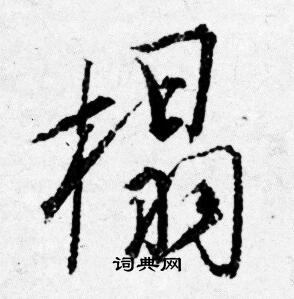 榻
词典网